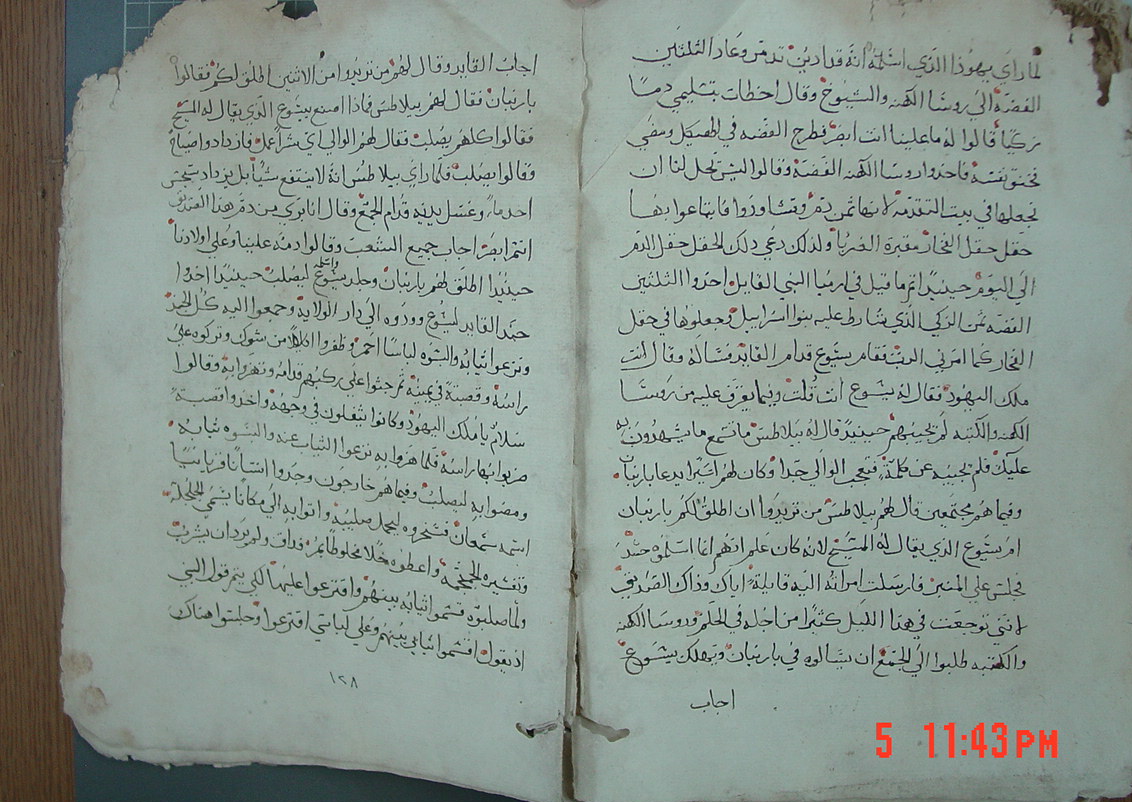 لما راي يهوذا الذي اسلمه انه قد ادين تدمر وعاد الثلثين
الفضه الي روسا الكهنه والشيوخ وقال اخطات بتسليمي دمًا
زكيًا قالوا له ما علينا انت ابصر فطرح الفضه في الهيكل ومضي
فخنق نفسه فاخدوا روسا الكهنه الفضه وقالوا ليس تحل لنا ان
نجعلها في بيت التقدمه لانها ثمن دم وتشاوروا فابتاعوا بها
حقل حقل الفخار مقبرة الغربا ولذلك دعي دلك الحقل حقل الدم
الي اليوم حينيدًا تم ما قيل في ارميا النبي القايل اخدوا الثلثين
الفضه ثمن الزكي الذي شارط عليه بنوا اسراييل وجعلوها في حقل
الفخار كما امرني الرب فقام يسوع قدام القايد فساله وقال انت
ملك اليهود فقال له يسوع انت قلت وفيما يعرف عليه من روسا
الكهنه والكتبه لم يجيبهم حينيدًا قال له بيلاطس ما تسمع ما يشهدون به
عليك فلم يجيبه عن كلمة فتعجب الوالي جدا وكان لهم اسيرا يدعا باربان
وفيما هم مجتمعين قال لهم بيلاطس من تريدوا ان اطلق لكم باربان
ام يسوع الذي يقال له المسيح لانه كان علم انهم انما اسلموه حسد
فجلس علي المنبر فارسلت امراته اليه قايلة اياك وذاك الصديق
لانني توجعت في هذا الليل كثيرا من اجله في الحلم وروسا الكهنه
والكتبه طلبوا الي الجمع ان يسالوه في باربان ويهلك يسوع
اجاب
اجاب القايد وقال لهم من تريدوا من الاثنين اطلق لكم فقالوا
باربان فقال لهم بيلاطس فماذا اصنع بيسوع الذي يقال له المسيح
فقالوا كلهم يصلب فقال لهم الوالي اي شرا عمل فازدادوا صياح
وقالوا يصلب فلما راي بيلاطس انه لا ينتفع شيًا بل يزداد سجس
اخد ماء وغسل يديه قدام الجمع وقال انا بري من دم هذا الصديق
انتم ابصر اجاب جميع الشعب وقالوا دمه علينا وعلي اولادنا
حينيدًا اطلق لهم باربان وجلد يسوع واسلمه ليصلب حينيدًا اخدوا
جند القايد ليسوع وودوه الي دار الولايه وجمعوا اليه كل الجند
ونزعوا ثيابه والبسوه لباسًا احمر وظفروا اكليلا من شوك وتركوه علي
راسه وقصبة في يمينه ثم جثوا علي ركبهم قدامه وتهزوا به وقالوا
سلام يا ملك اليهود وكانوا يتفلون في وجهه واخدوا قصبة
ضربوا بها راسه فلما هزوا به نزعوا الثياب عنه والبسوه ثيابه
ومضوا به ليصلب وفيما هم خارجون وجدوا انسانًا قريانيًا
اسمه سمعان فسخروه ليحمل صليبه واتوا به الي مكانًا يسمي الجلجلة
وتفسيره الجمجمه واعطوه خلا مخلوطًا بمر فداق ولم يرد ان يشرب
ولما صلبوه قسموا ثيابه بينهم واقترعوا عليها لكي يتم قول النبي
اذ يقول اقتسموا ثيابي بينهم وعلي لباسي اقترعوا وجلسوا هناك
١٢٨
5 11:43 PM